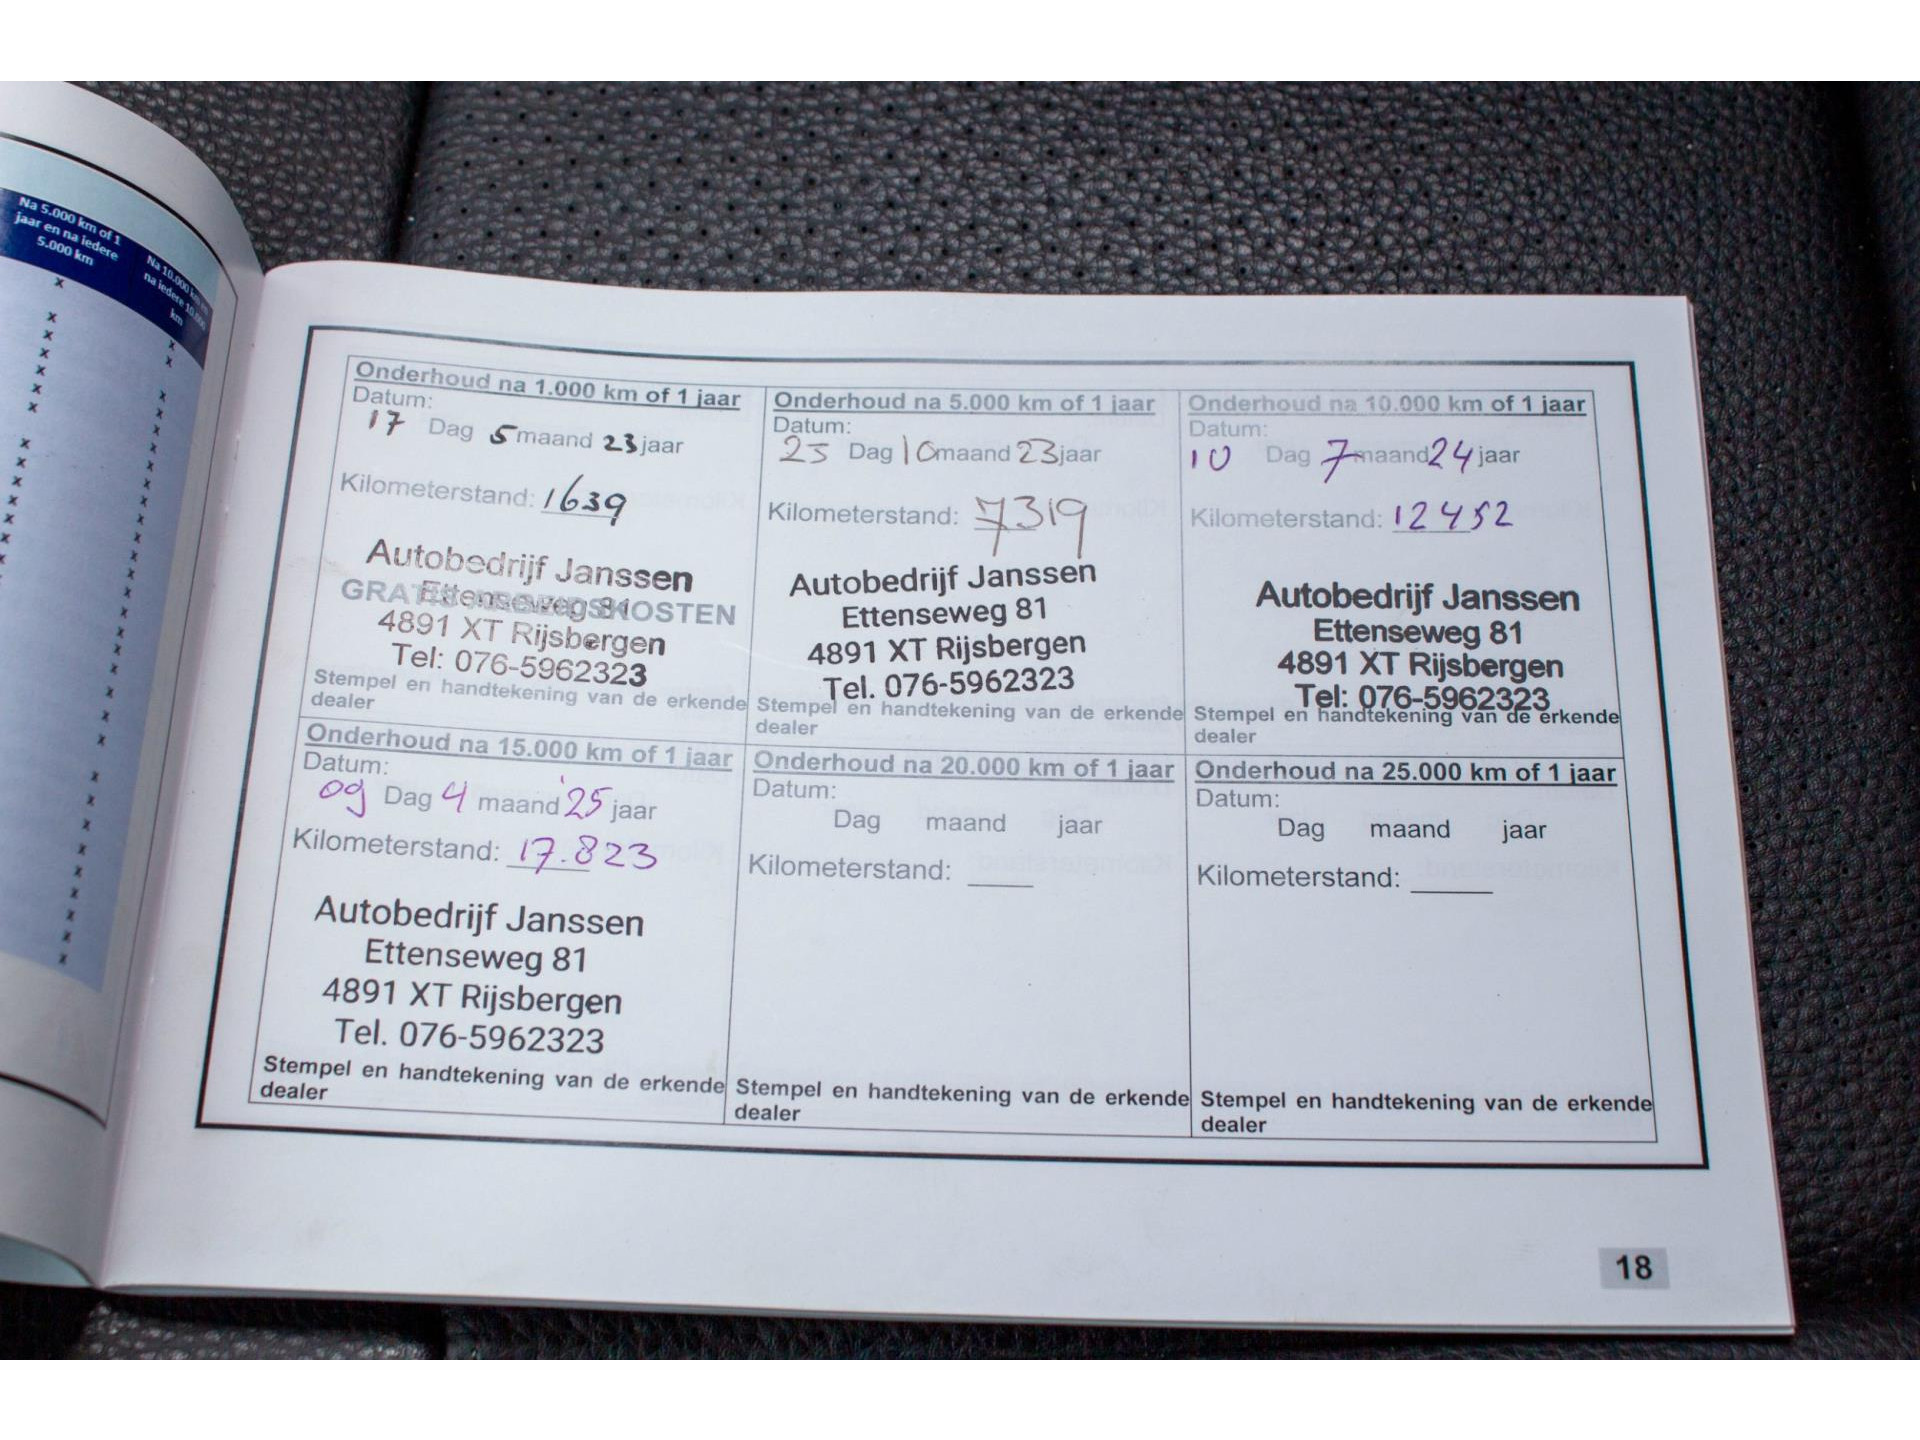 Na 5.000 km of 1
jaar en na iedere
5.000 km
Na 10.000 km en
na iedere 10.000
km
Onderhoud na 1.000 km of 1 jaar
Datum:
17 Dag 5 maand 23 jaar
Kilometerstand: 1639
Autobedrijf Janssen
Ettenseweg 81
GRATIS ARBEIDSKOSTEN
4891 XT Rijsbergen
Tel: 076-5962323
Stempel en handtekening van de erkende
dealer
Onderhoud na 5.000 km of 1 jaar
Datum:
25 Dag 10 maand 23 jaar
Kilometerstand: 7319
Autobedrijf Janssen
Ettenseweg 81
4891 XT Rijsbergen
Tel. 076-5962323
Stempel en handtekening van de erkende
dealer
Onderhoud na 10.000 km of 1 jaar
Datum:
10 Dag 7 maand 24 jaar
Kilometerstand: 12452
Autobedrijf Janssen
Ettenseweg 81
4891 XT Rijsbergen
Tel: 076-5962323
Stempel en handtekening van de erkende
dealer
Onderhoud na 15.000 km of 1 jaar
Datum:
09 Dag 4 maand '25 jaar
Kilometerstand: 17.823
Autobedrijf Janssen
Ettenseweg 81
4891 XT Rijsbergen
Tel. 076-5962323
Stempel en handtekening van de erkende
dealer
Onderhoud na 20.000 km of 1 jaar
Datum:
Dag maand jaar
Kilometerstand: ____
Stempel en handtekening van de erkende
dealer
Onderhoud na 25.000 km of 1 jaar
Datum:
Dag maand jaar
Kilometerstand: _____
Stempel en handtekening van de erkende
dealer
18